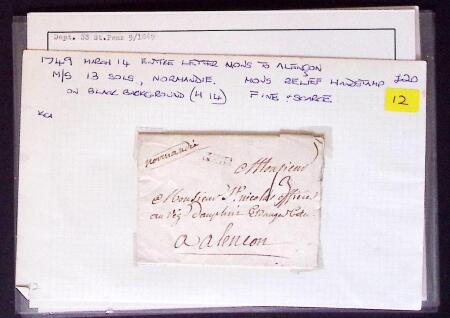 Dept. 33 St.Pons 9/1849
1749 MARCH 14 ENTIRE LETTER MONS TO ALENÇON
M/S 13 SOLS, NORMANDIE. MONS RELIEF HANDSTAMP £20
ON BLACK BACKGROUND (H 14) FINE & SCARCE
12
normandie
Monsieur
13
Monsieur St. nicolas officier
au Reg Dauphin
a alencon
12